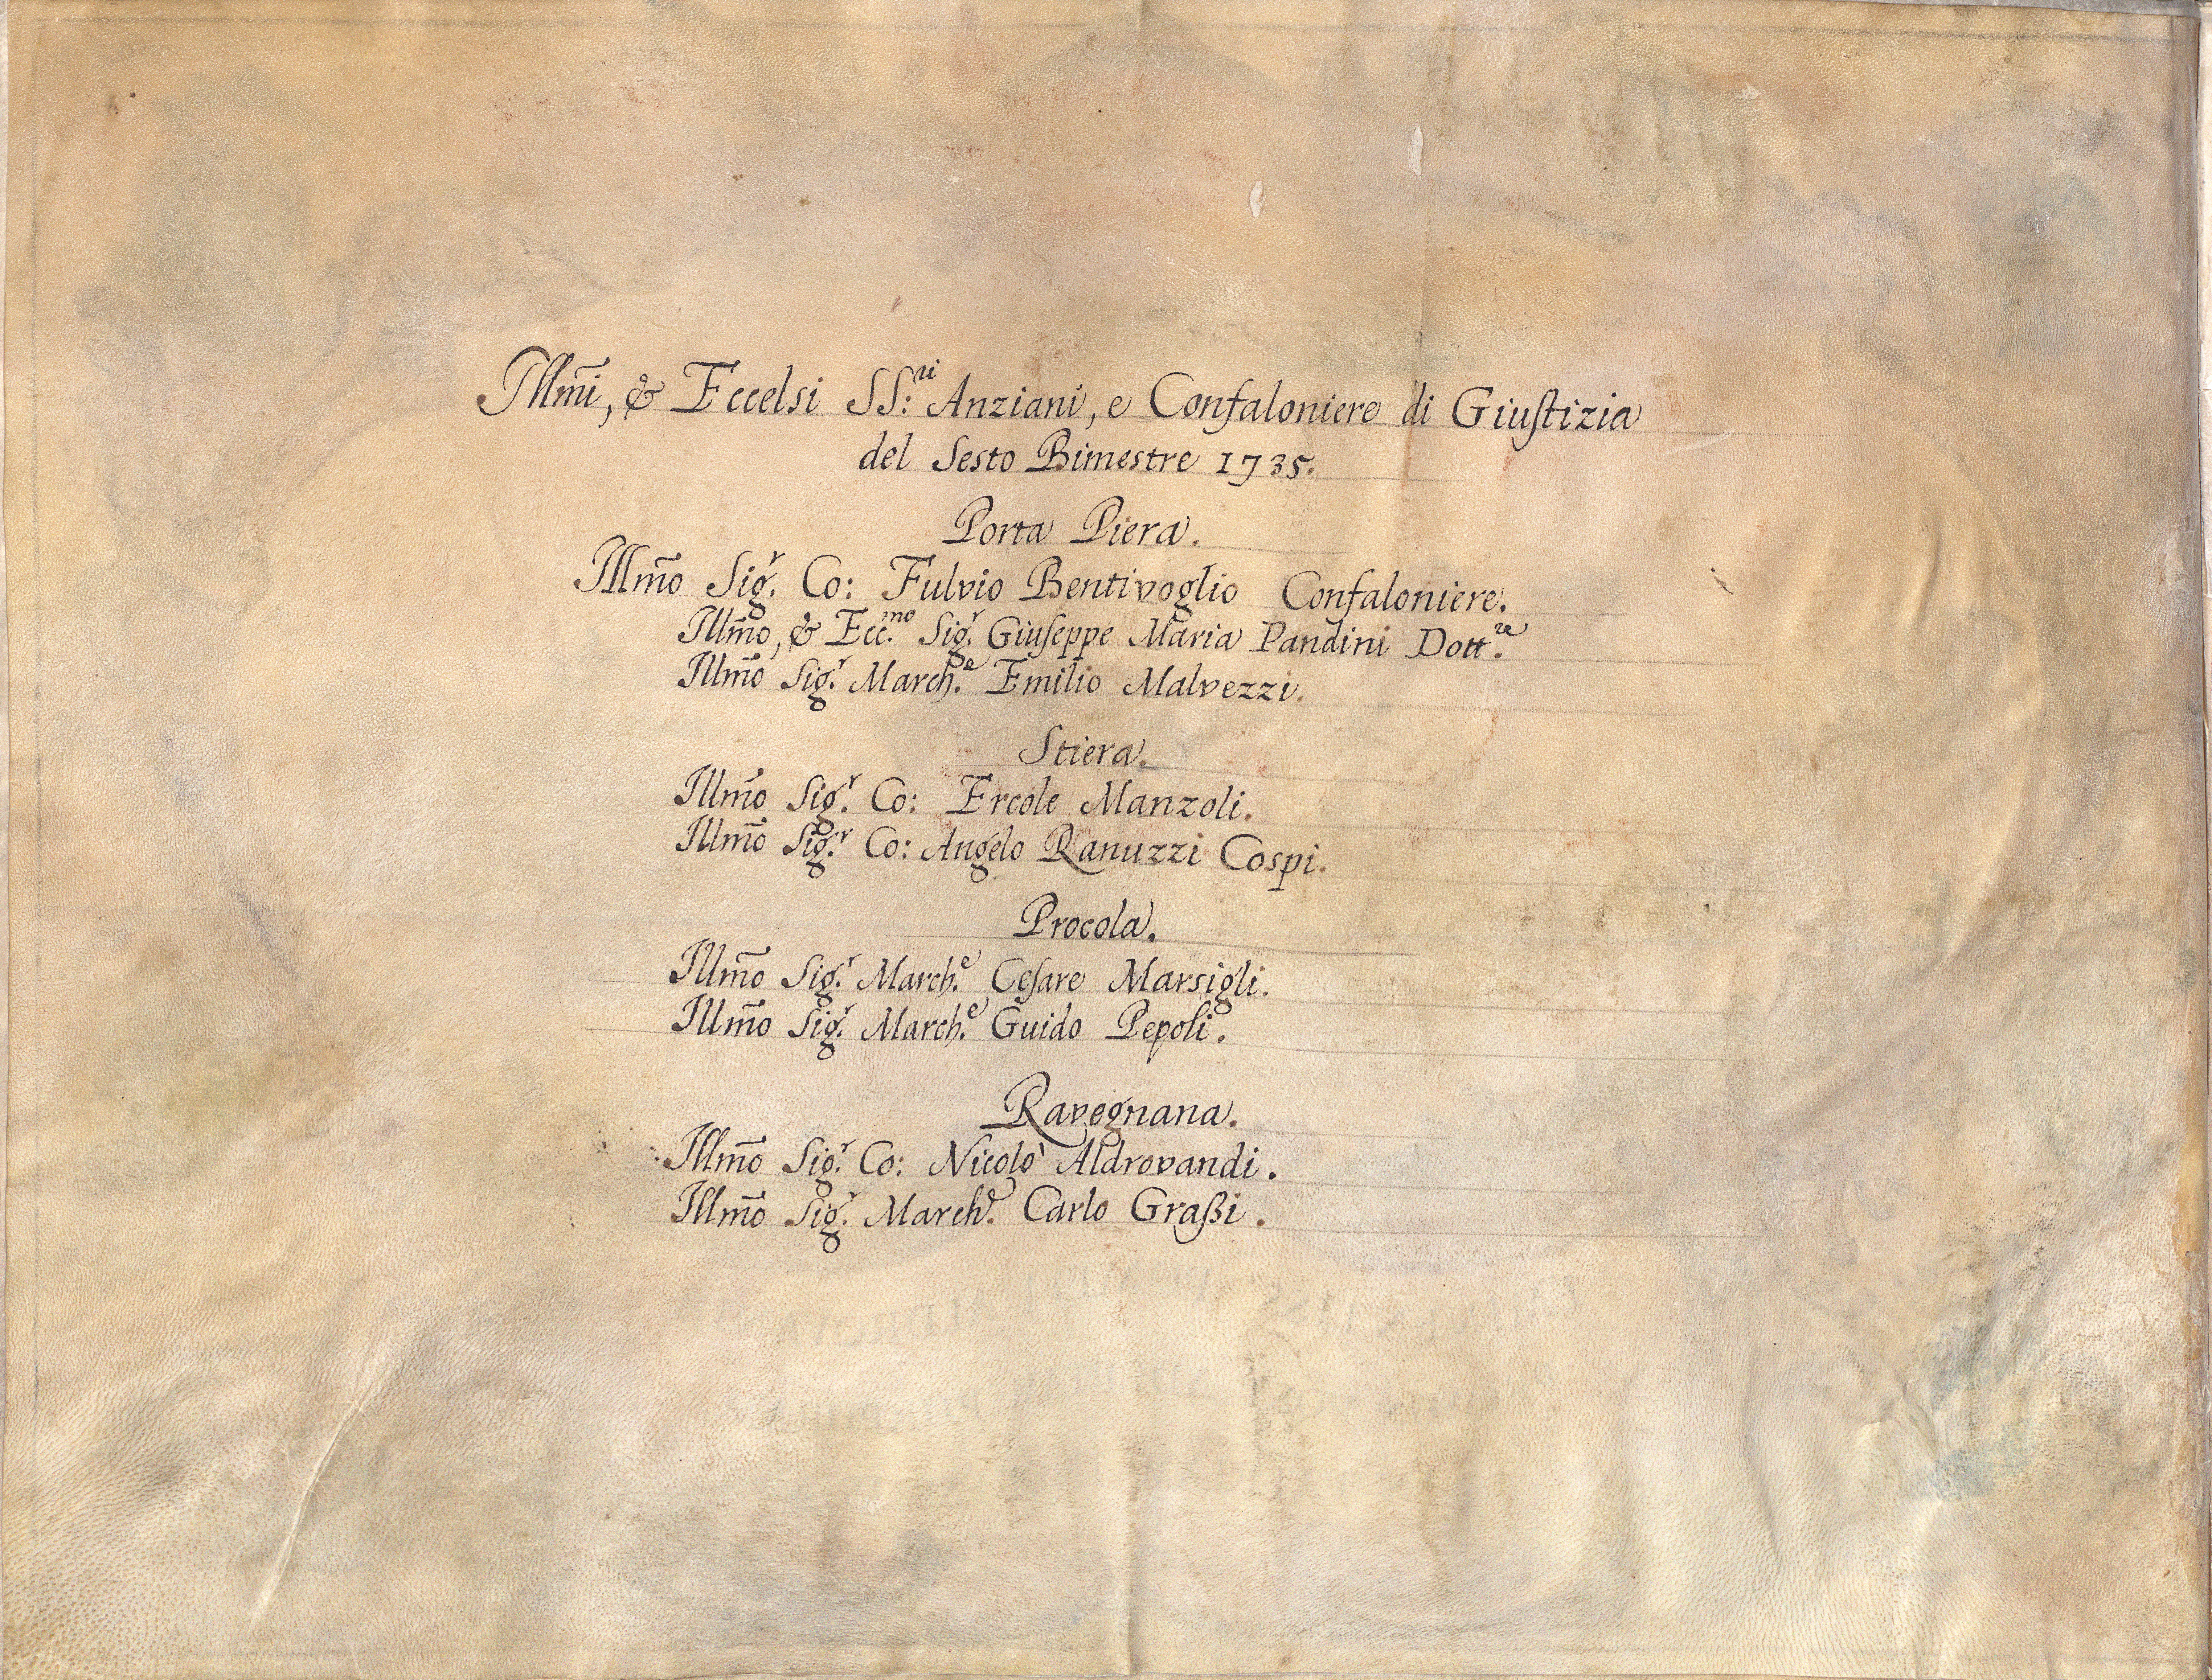 Illm̃i, & Eccelsi SS:ri Anziani, e Confaloniere di Giuſtizia
del Sesto Bimestre 1735.
Porta Piera.
Illm̃o Sig.r Co: Fulvio Bentivoglio Confaloniere.
Illm̃o, & Ecc.mo Sig.r Giuſeppe Maria Pandini Dott.re
Illm̃o Sig.r March.e Emilio Malvezzi.
Stiera.
Illm̃o Sig.r Co: Ercole Manzoli.
Illm̃o Sig.r Co: Angelo Ranuzzi Cospi.
Procola.
Illm̃o Sig.r March.e Ceſare Marsigli.
Illm̃o Sig.r March.e Guido Pepoli.
Ravegnana.
Illm̃o Sig.r Co: Nicolò Aldrovandi.
Illm̃o Sig.r March.e Carlo Graßi.